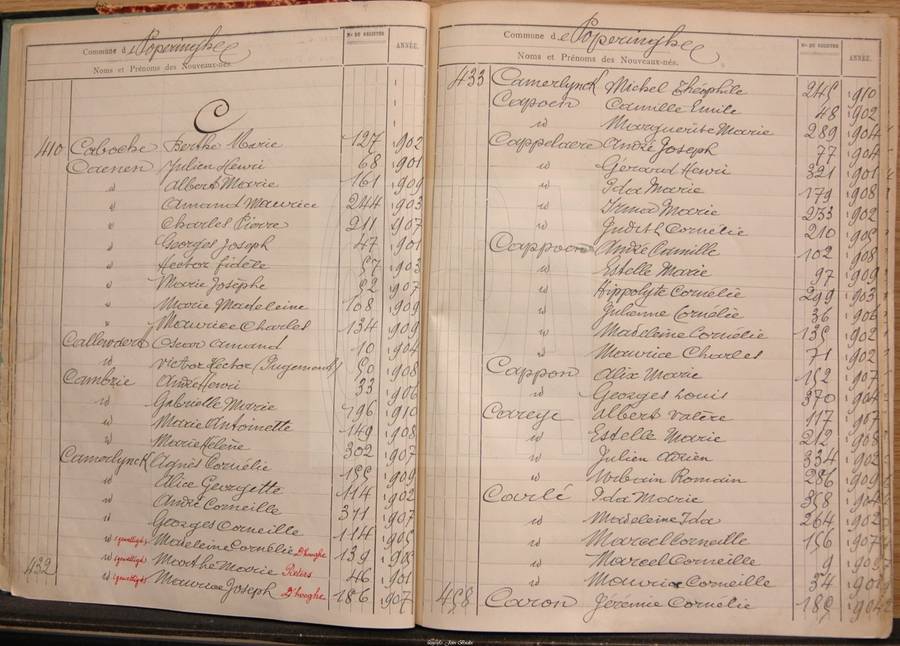 Commune de Poperinghe
Nos DU REGISTRE
ANNÉE.
Noms et Prénoms des Nouveaux-nés.
C
410 Caboche Berthe Marie 127 1902
Caenen Julien Henri 68 1901
id Albert Marie 161 1909
id Amand Maurice 244 1903
id Charles Pierre 211 1907
id Georges Joseph 47 1901
id Hector fidèle 57 1903
id Marie Josèphe 52 1907
id Marie Madeleine 108 1909
id Maurice Charles 134 1909
Callewaert Oscar Amand 10 1904
id Victor Hector 50 1908
Cambrie André Henri 33 1906
id Gabrielle Marie 196 1910
id Marie Antoinette 149 1908
id Marie Hélène 302 1907
Camerlynck Agnès Cornélie 155 1909
id Alice Georgette 114 1902
id André Corneille 311 1907
id Georges Corneille 114 1905
id (gewettigd) Madeleine Cornélie D'hooghe 139
id (gewettigd) Marthe Marie Peters 46 1901
432 id (gewettigd) Maurice Joseph D'hooghe 186 1907
Commune de Poperinghe
Nos DU REGISTRE
ANNÉE.
Noms et Prénoms des Nouveaux-nés.
433 Camerlynck Michel Théophile 245 1910
Capoen Camille Emile 48 1902
id Marguerite Marie 289 1904
Cappelaere André Joseph 77 1904
id Gérard Henri 321 1901
id Ida Marie 179 1908
id Irma Marie 233 1902
id Judith Cornélie 210 1905
Cappoen André Camille 102 1908
id Estelle Marie 97 1909
id Hippolyte Cornélie 299 1903
id Julienne Cornélie 36 1906
id Madeleine Cornélie 135 1902
id Maurice Charles 71 1902
Cappon Alix Marie 152 1907
id Georges Louis 370 1904
Careye Albert Valère 117 1907
id Estelle Marie 212 1908
id Julien Adrien 334 1902
id Urbain Romain 286 1909
Carlé Ida Marie 358 1904
id Madeleine Ida 264 1902
id Marcel Corneille 156 1907
id Marcel Corneille 9
id Maurice Corneille 34
458 Caron Jérémie Cornélie 185 1904